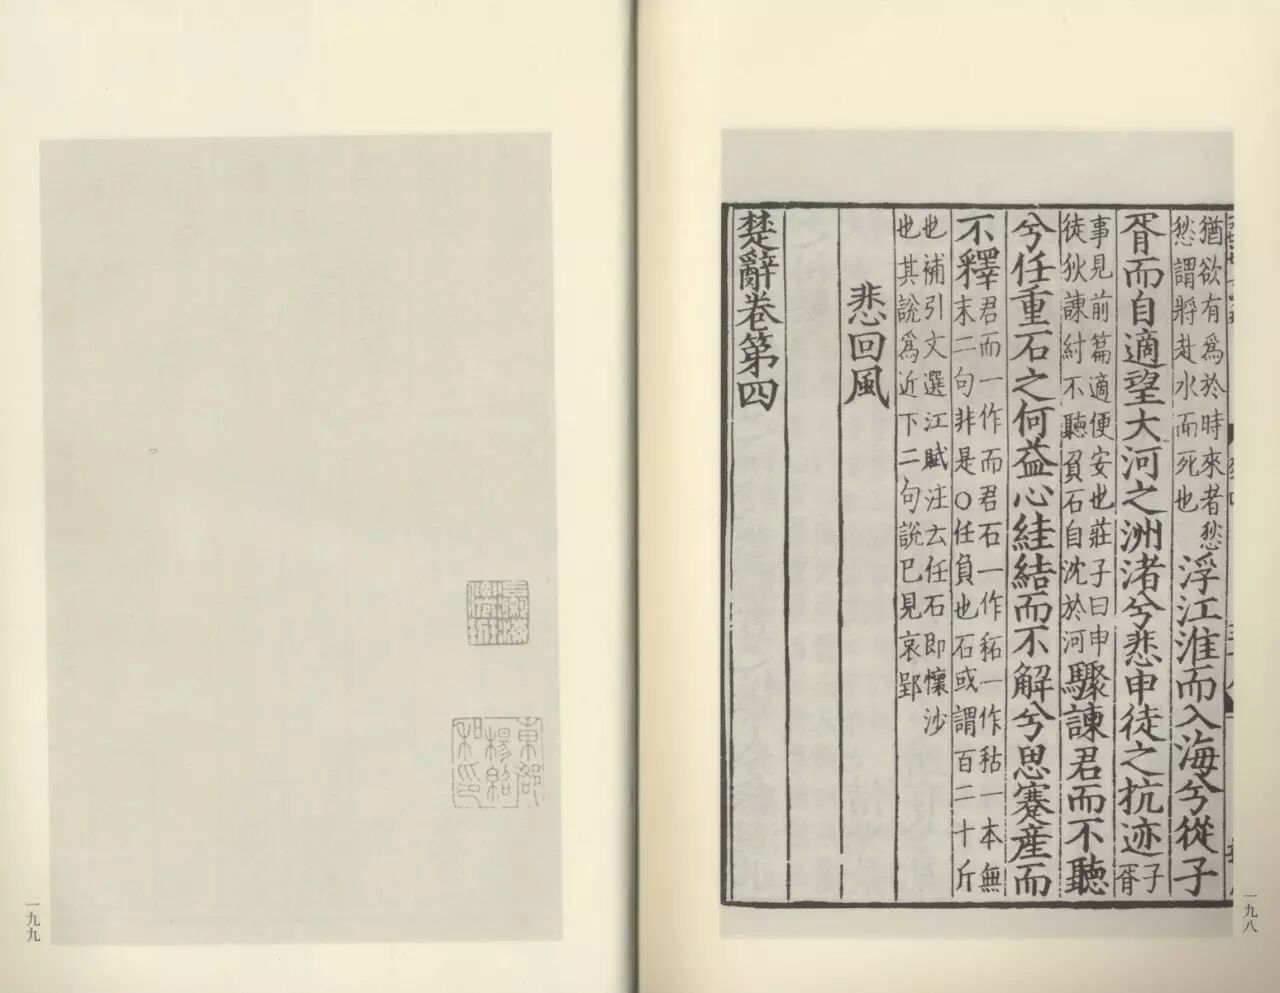 猶欲有爲於時來者愁
愁謂將赴水而死也
浮江淮而入海兮從子
胥而自適望大河之洲渚兮悲申徒之抗迹
子
胥
事見前篇適便安也莊子曰申
徒狄諫紂不聽負石自沈於河
驟諫君而不聽
兮任重石之何益心絓結而不解兮思蹇産而
不釋
君而一作而君石一作䄷一作秙一本無
末二句非是○任負也石或謂百二十斤
也補引文選江賦注云任石即懷沙
也其說爲近下二句說已見哀郢
悲回風
楚辭卷第四
一九八
東郡
楊紹
和印
一九九